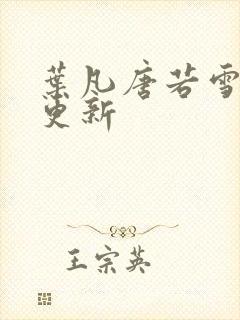 葉凡唐若雪
更新
王宗英